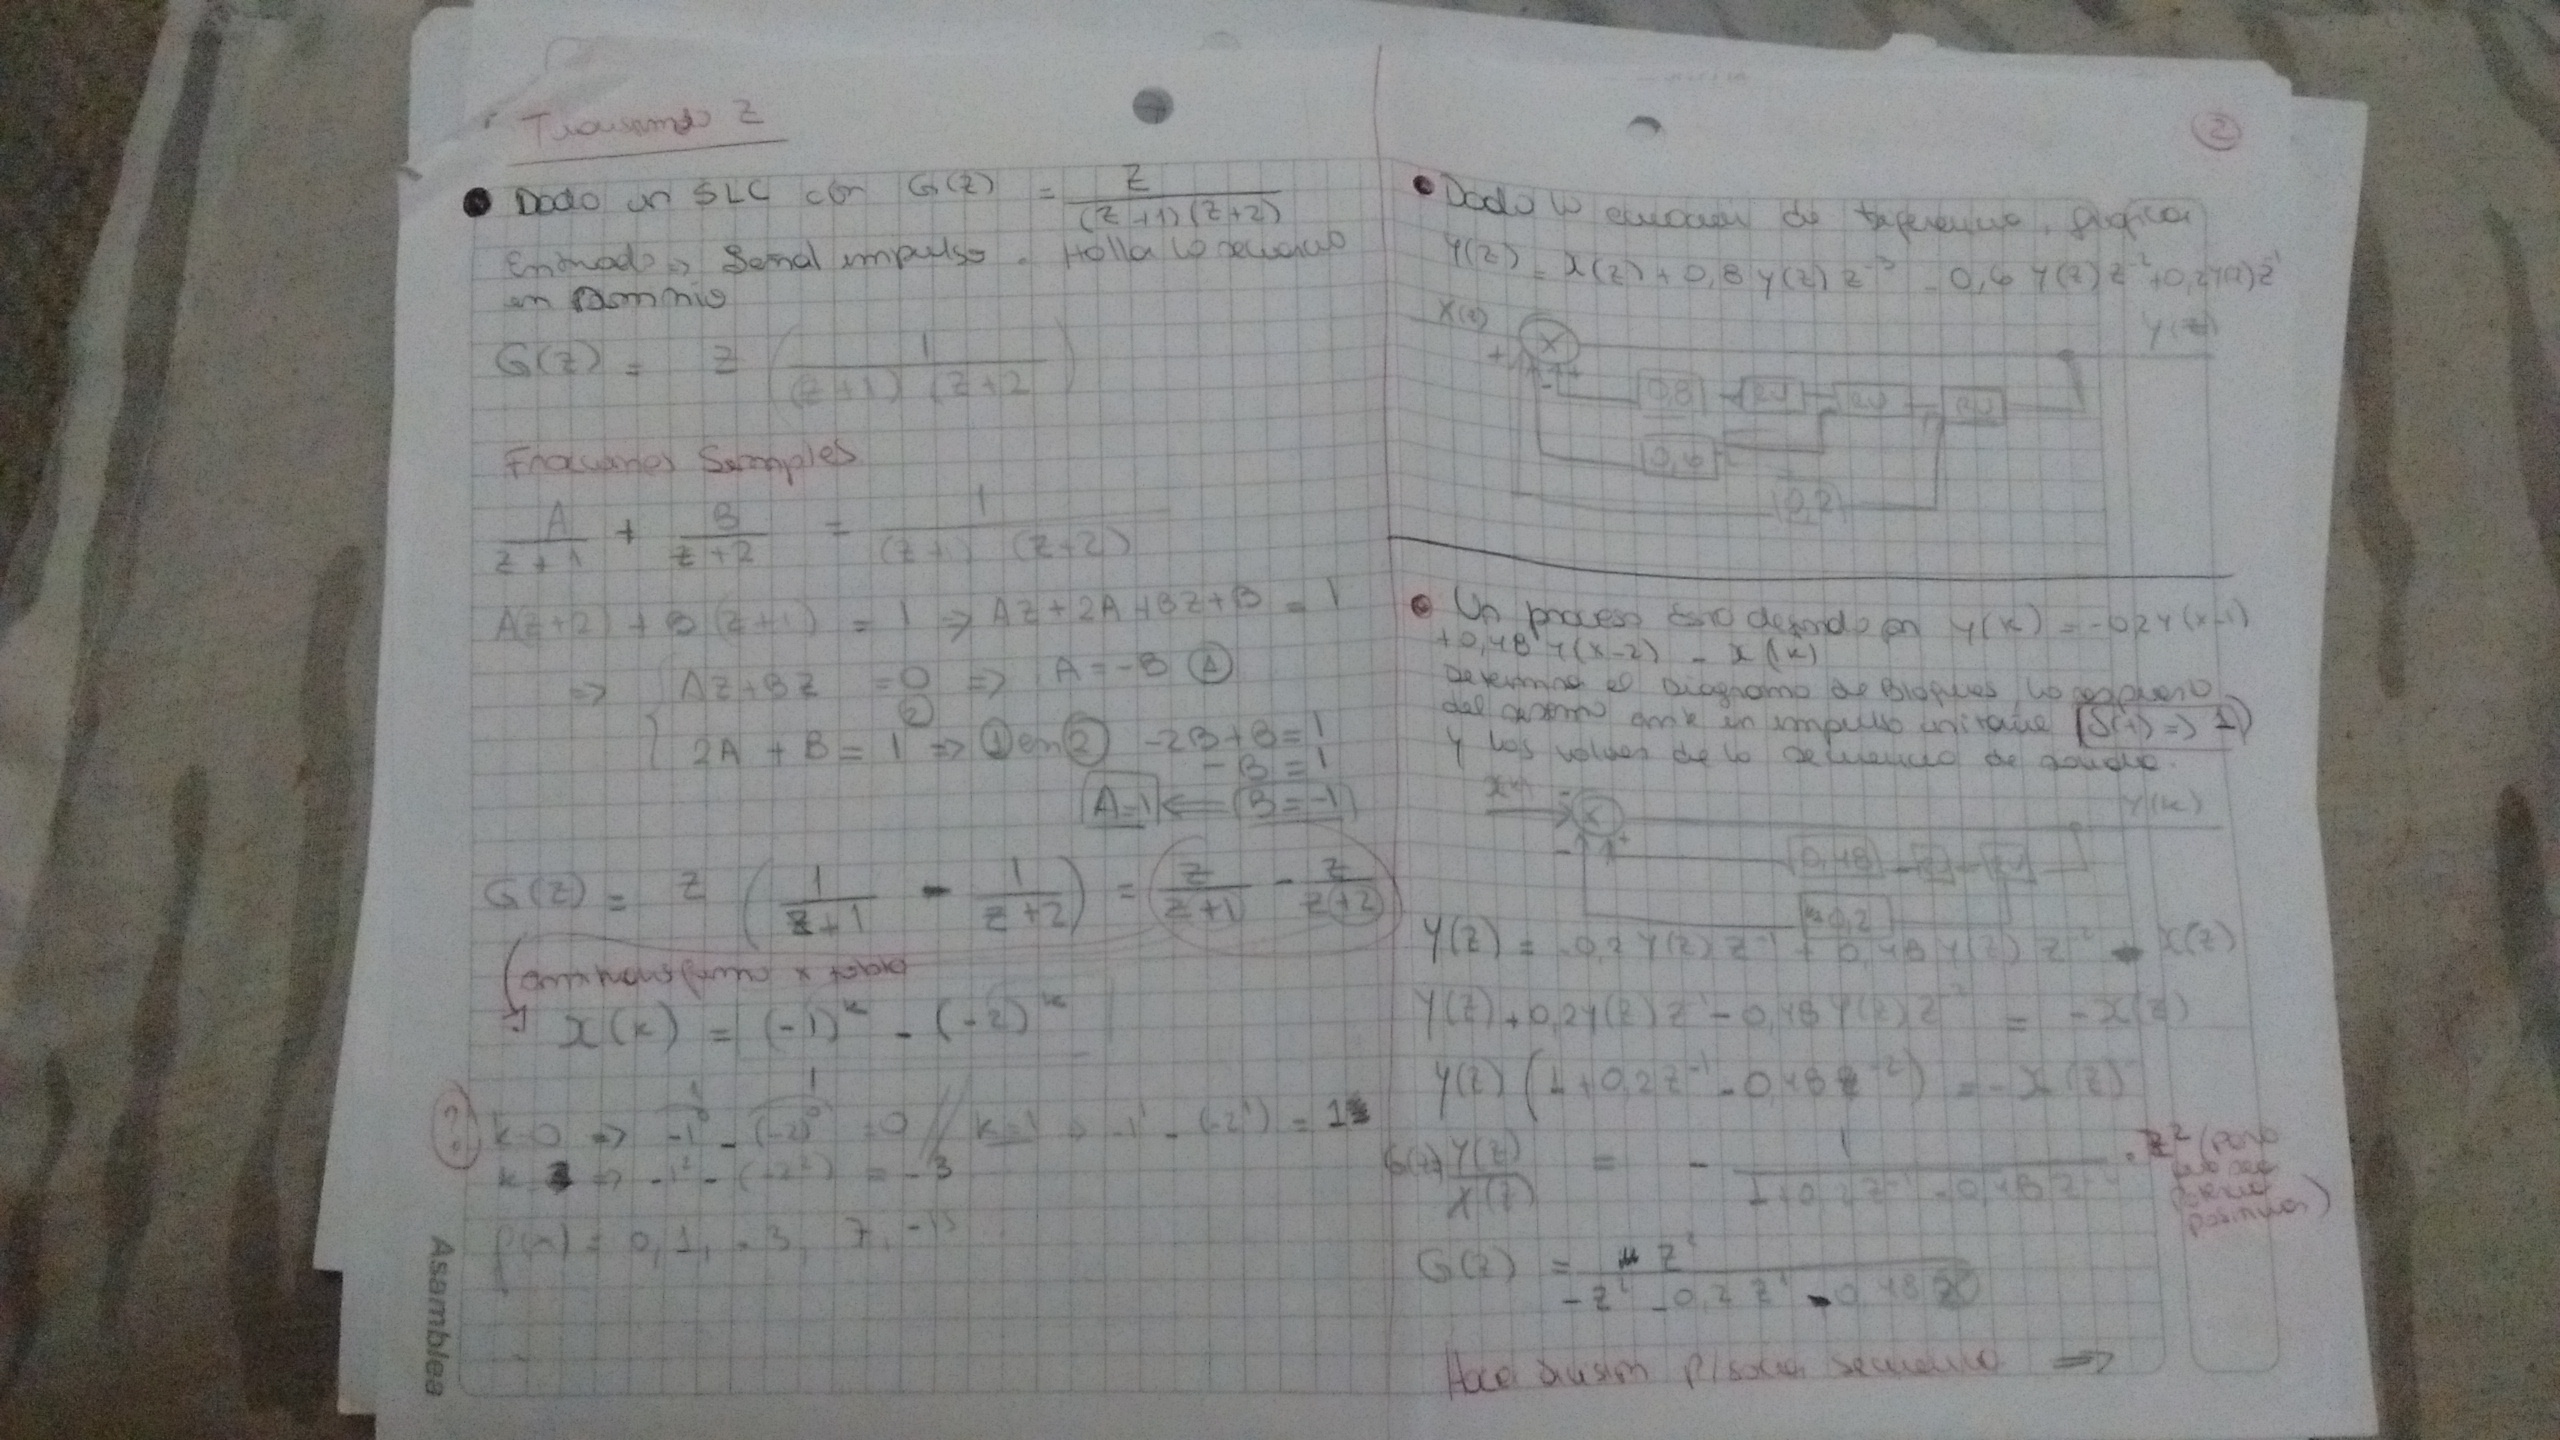 Transformado Z
Dado un SLC con G(z) = z / (z+1)(z+2)
Entrada => Señal impulso. Halla la secuencia
en Dominio
G(z) = z ( 1 / (z+1) (z+2) )
Fracciones Simples
A / z+1 + B / z+2 = 1 / (z+1) (z+2)
A(z+2) + B(z+1) = 1 => Az+2A+Bz+B = 1
=> { Az+Bz = 0 => A=-B ①
2A + B = 1 ② => ① en ② -2B+B=1
-B=1
A=1 <= B=-1
G(z) = z ( 1 / z+1 - 1 / z+2 ) = z / z+1 - z / z+2
antitransformo x tabla
x(k) = (-1)^k - (-2)^k
k=0 => -1^0 - (-2)^0 = 0 // k=1 => -1^1 - (-2^1) = 1
k 2 => -1^2 - (-2^2) = -3
f(n) = 0, 1, -3, 7, -15
Asamblea
②
Dado la ecuacion de diferencia, graficar
Y(z) = X(z) + 0,8 Y(z) z^-3 - 0,6 Y(z) z^-2 + 0,2 Y(z) z^-1
X(z)
Y(z)
0,8
0,6
0,2
Un proceso esta definido por y(k) = -0,2 y(k-1)
+0,48 y(k-2) - x(k)
Determinar el Diagrama de Bloques, la respuesta
del sistema ante un impulso unitario (δ(t) => 1)
y los valores de la secuencia de salida.
Y(k)
0,48
0,2
Y(z) = -0,2 Y(z) z^-1 + 0,48 Y(z) z^-2 - X(z)
Y(z) + 0,2 Y(z) z^-1 - 0,48 Y(z) z^-2 = -X(z)
Y(z) (1 + 0,2 z^-1 - 0,48 z^-2) = -X(z)
G(z) = Y(z) / X(z) = - 1 / 1+0,2z^-1 - 0,48z^-2 . z^2 (para
positivas)
G(z) = z^2 / -z^2 - 0,2 z^1 - 0,48
Hacer division p/sacar secuencia =>